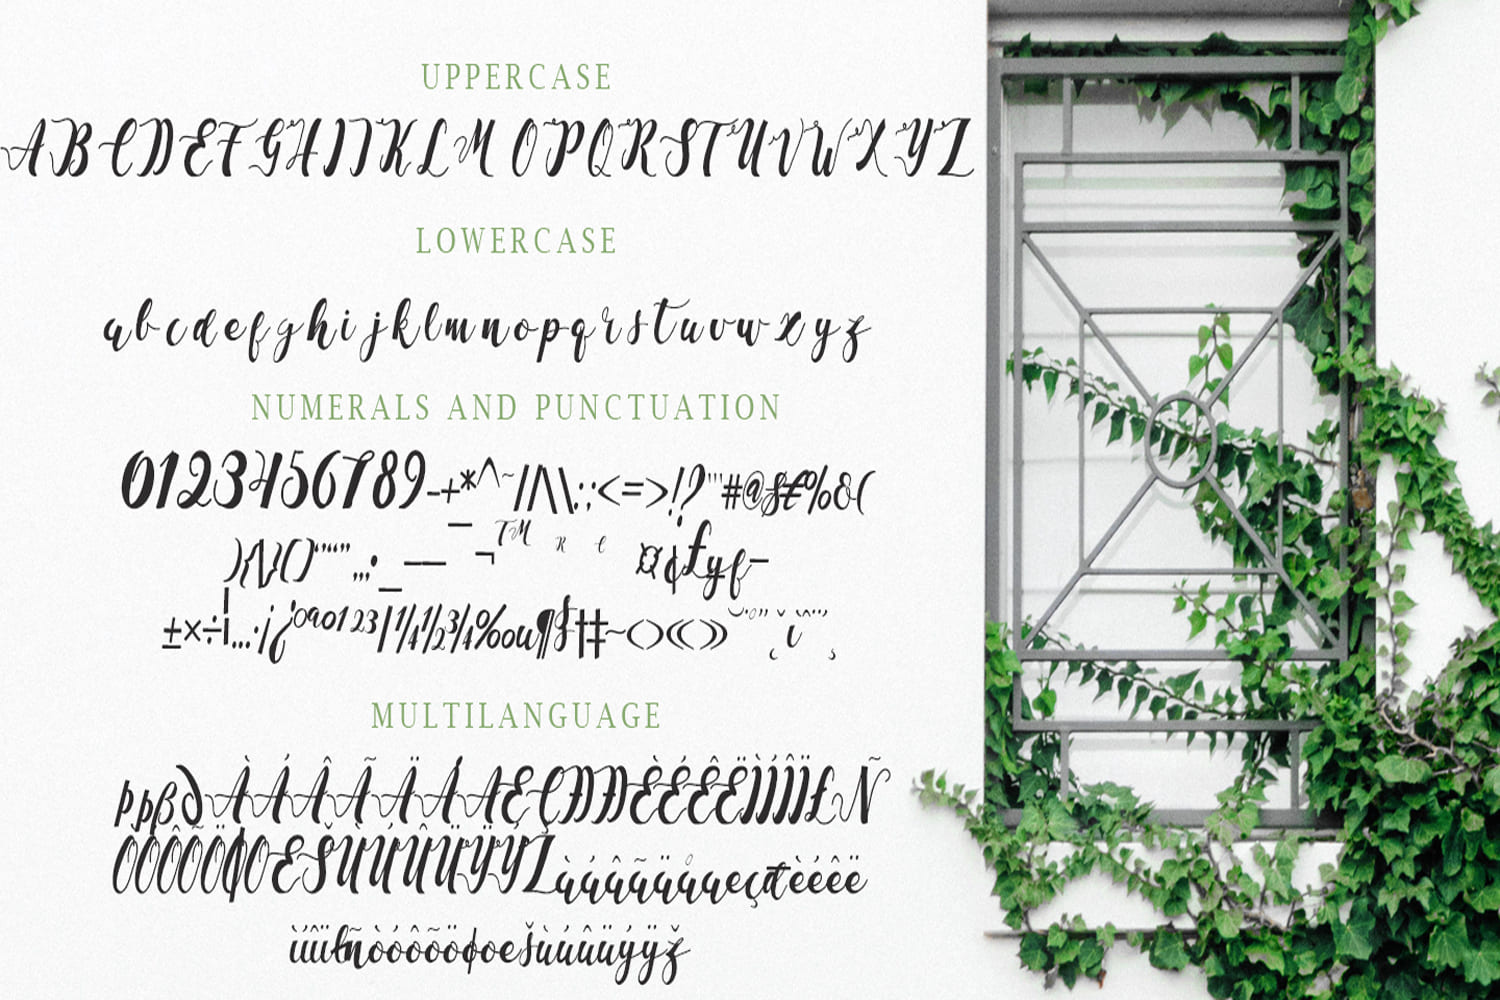 UPPERCASE
A B C D E F G H I J K L M O P Q R S T U V W X Y Z
LOWERCASE
a b c d e f g h i j k l m n o p q r s t u v w x y z
NUMERALS AND PUNCTUATION
0123456789-+*^~/|\\.:;<=>!?"'#@$€%&(
){}[]''"“”„…•_–— ¯¬™ R c ¤¢£¥ƒ–
±×÷¦…·¡¿ºªº¹²³|¼½¾‰µ¶§†‡~‹›«»˘˙°˝˛ˇıˆ˜¨¸
MULTILANGUAGE
ÞþßðÀÁÂÃÄÅÆÇÐÐÈÉÊËÌÍÎÏŁÑ
ÒÓÔÕÖØŒŠÙÚÛÜÝŸŽàáâãäåæçđèéêë
ìíîïłñòóôõöøœšùúûüýÿž